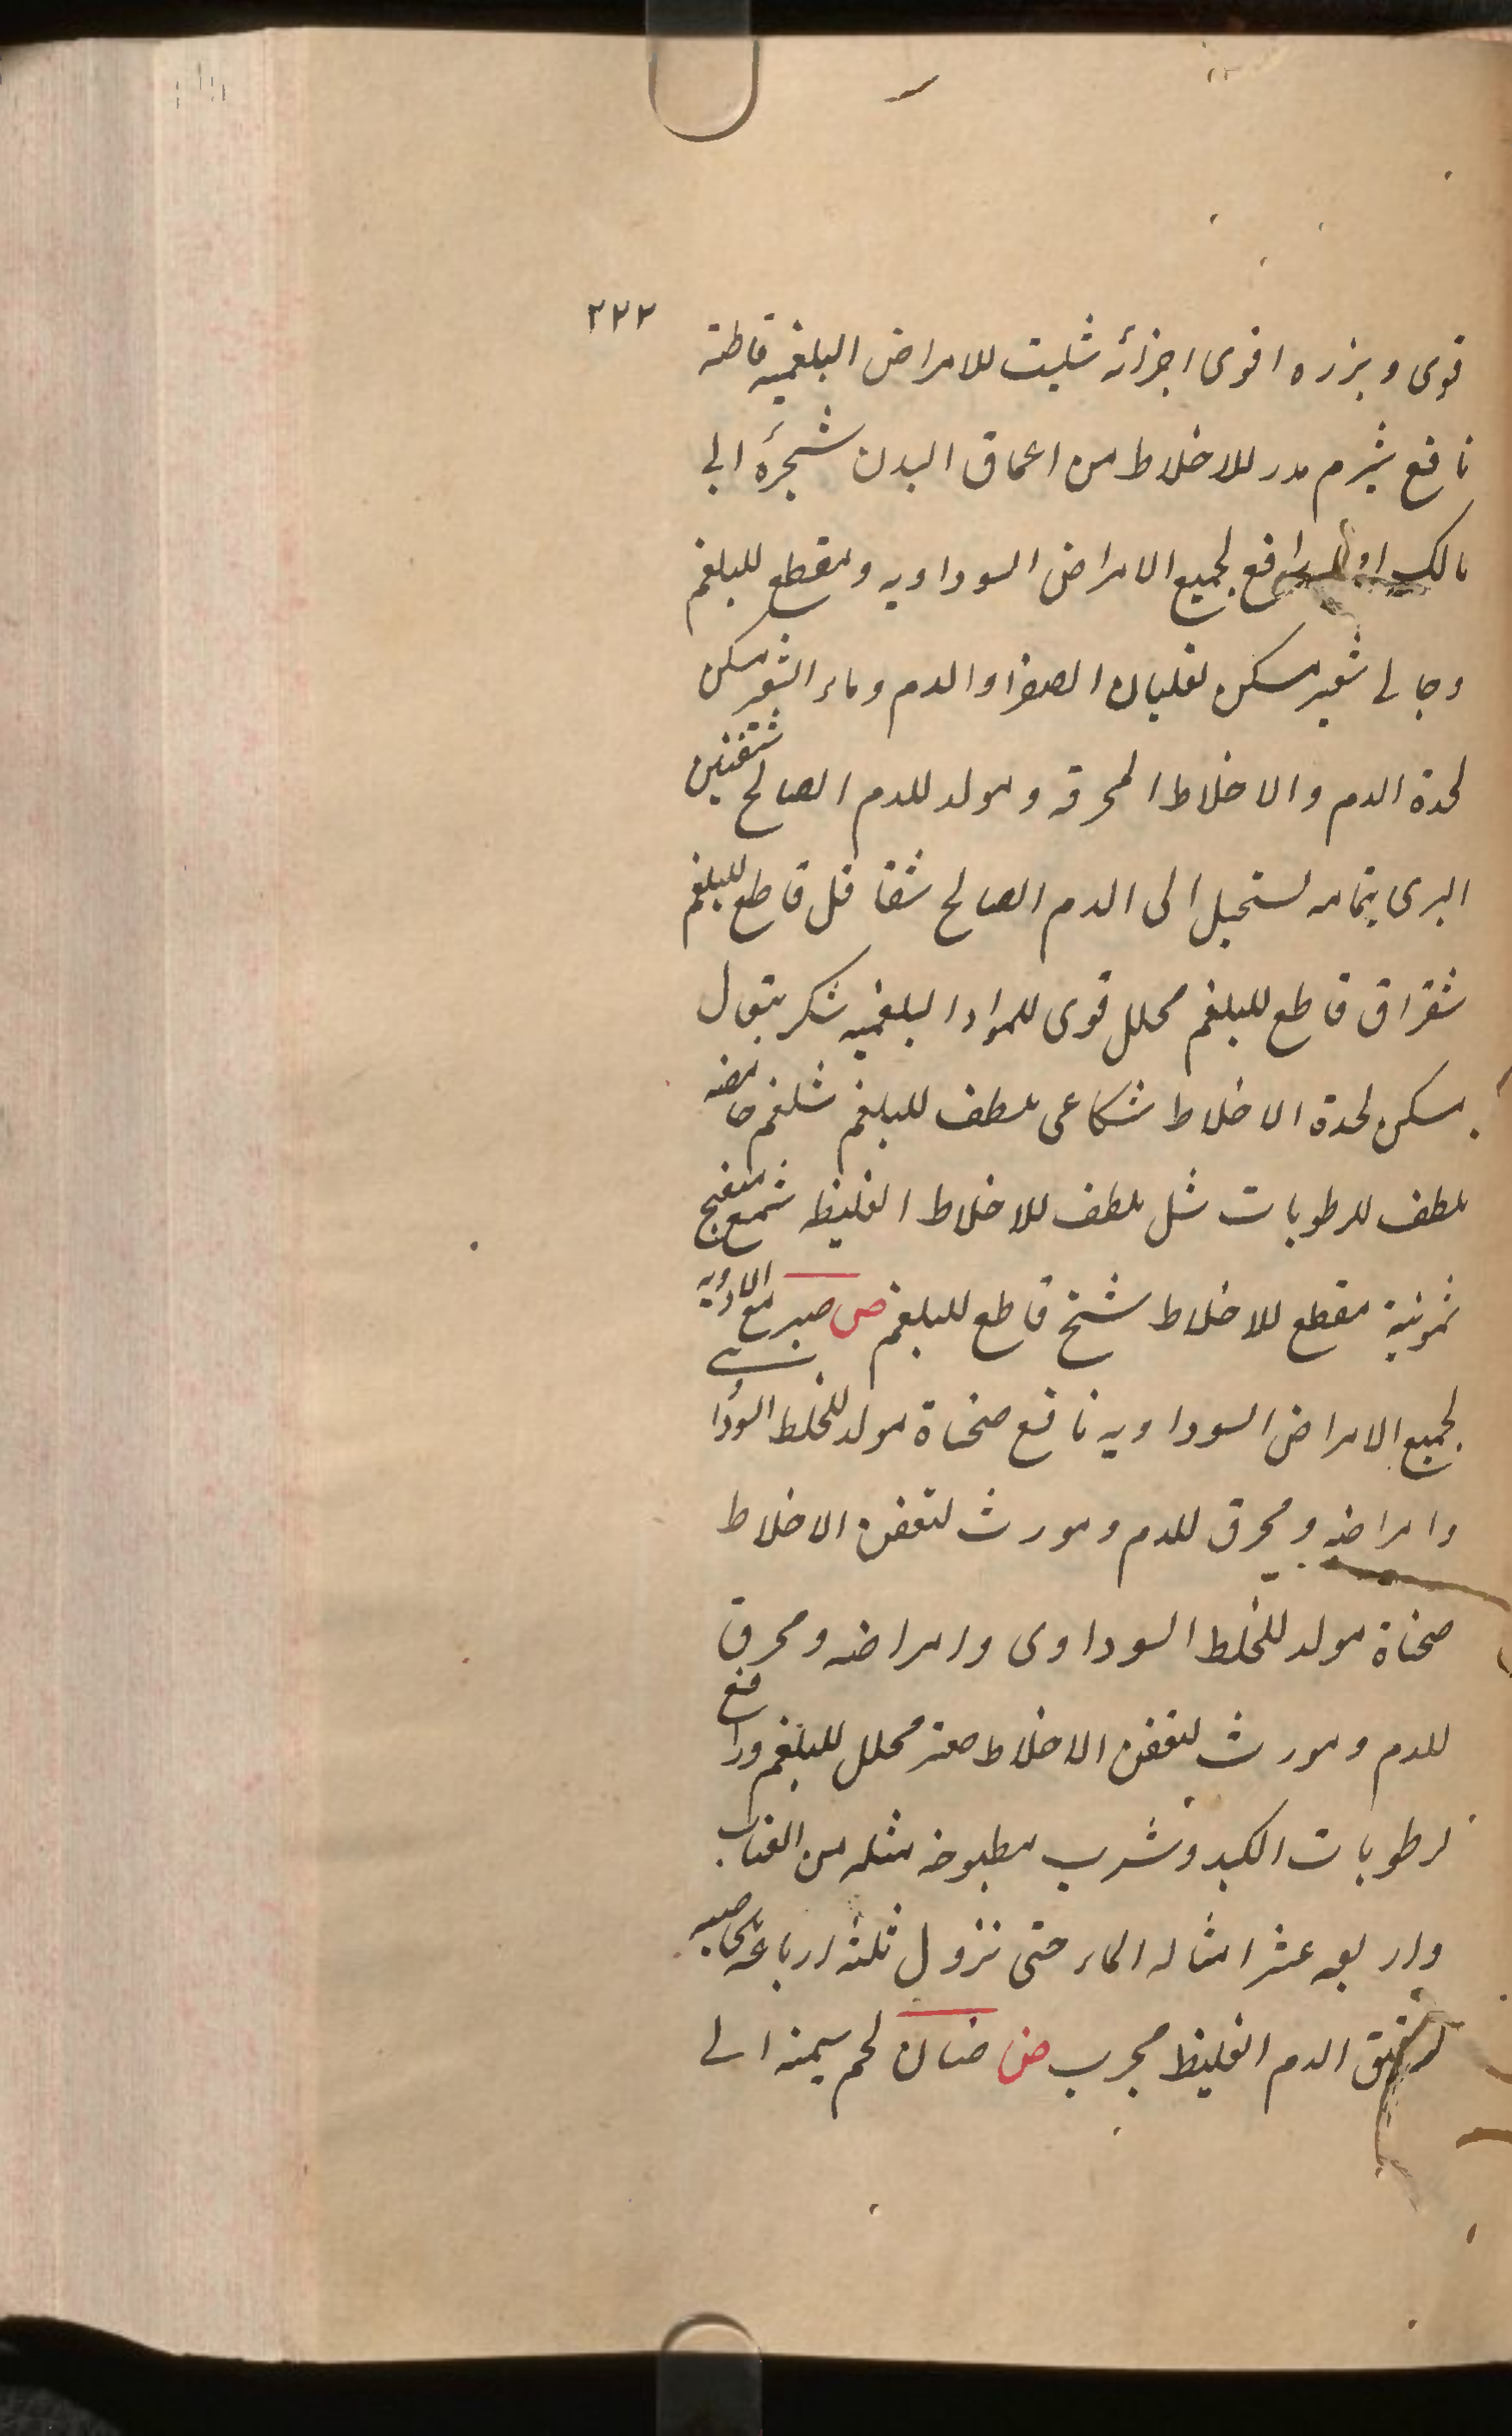 ٢٢٢
قوى وبزره اقوى اجزائه شبت للامراض البلغميه قاطبة
نافع شبرم مدر للاخلاط من اعماق البدن شجرة ابى
مالك رافع لجميع الامراض السوداويه ومقطع للبلغم
وجالى شعير مسكن لغليان الصفرا والدم وماء الشعير مسكن
لحدة الدم والاخلاط المحرقه ومولد للدم الصالح شفنين
البرى بتمامه يستحيل الى الدم الصالح شقاقل قاطع للبلغم
شقراق قاطع للبلغم محلل قوى للمواد البلغميه شكر بتعال
مسكن لحدة الاخلاط شكاعى ملطف للبلغم شلغم حامضه
ملطف للرطوبات شل ملطف للاخلاط الغليظه شمع منضج
مقطع للاخلاط شنج قاطع للبلغم ص صبر مع الادويه
لجميع الامراض السوداويه نافع صحناة مولد للخلط السودا
وامراضه ومحرق للدم ومورث لتعفن الاخلاط
صحناة مولد للخلط السوداوى وامراضه ومحرق
للدم ومورث لتعفن الاخلاط صعتر محلل للبلغم ورافع
لرطوبات الكبد وشرب مطبوخه مثله من العناب
واربعه عشر امثاله الماء حتى تزول ثلثة ارباعه
لترقيق الدم الغليظ مجرب ض ضان لحم سمينه الى